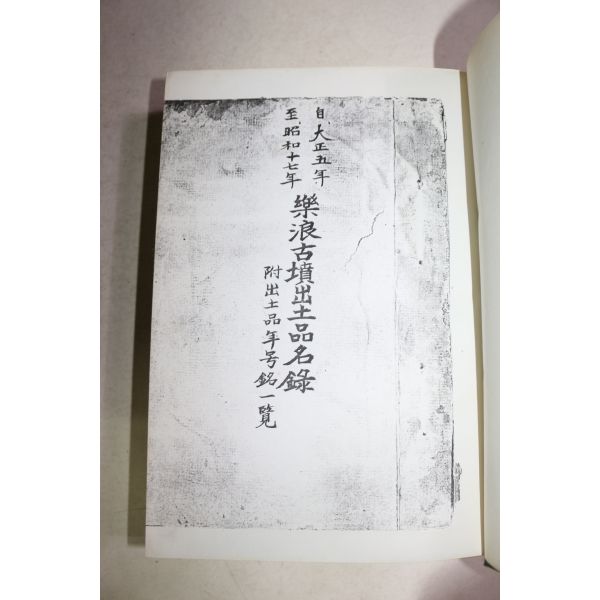 自大正五年
至昭和十七年
樂浪古墳出土品名錄
附出土品年号銘一覽